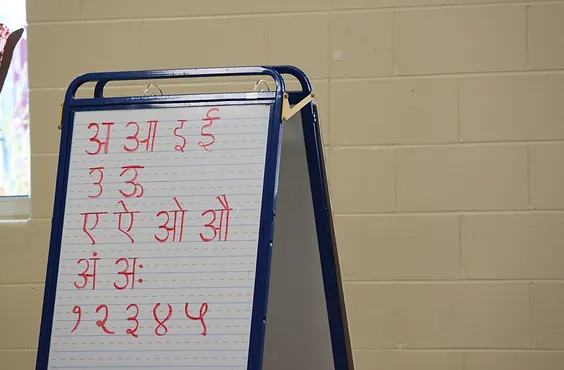 अ आ इ ई
उ ऊ
ए ऐ ओ औ
अं अः
१ २ ३ ४ ५